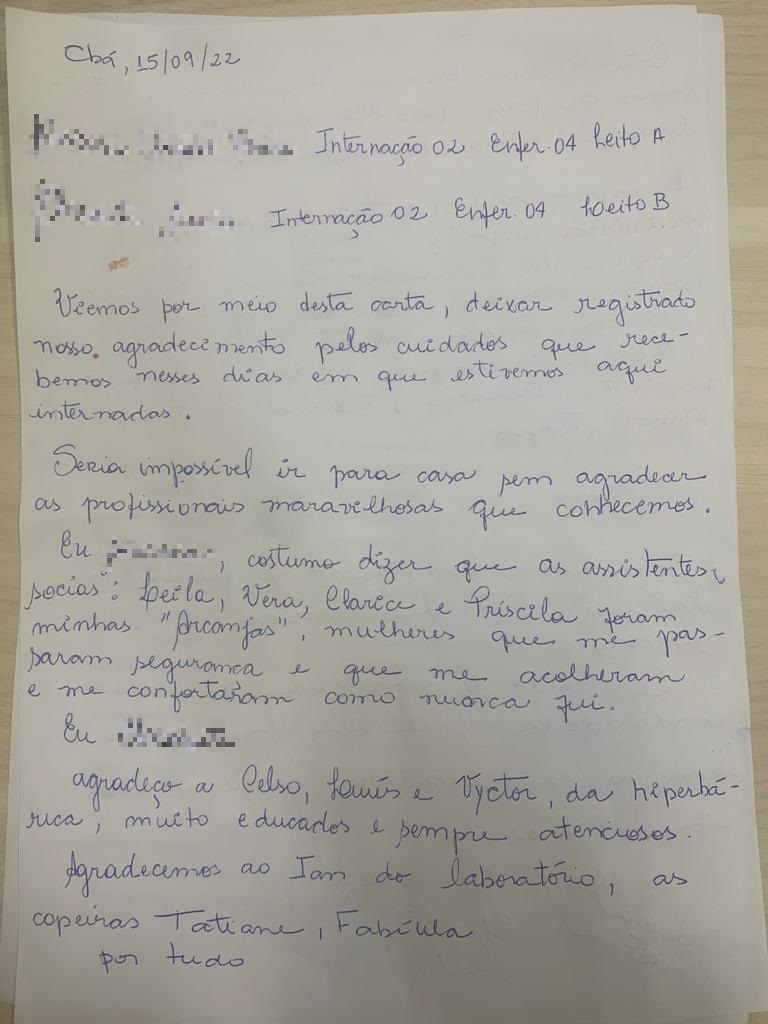 Cbá, 15/09/22
Internação 02 Enfer. 04 Leito A
Internação 02 Enfer. 04 Loeito B
Viemos por meio desta carta, deixar registrado
nosso agradecimento pelos cuidados que rece-
bemos nesses dias em que estivemos aqui
internadas.
Seria impossível ir para casa sem agradecer
as profissionais maravilhosas que conhecemos.
Eu , costumo dizer que as assistentes
socias": Leila, Vera, Clarice e Priscila foram
minhas "Arcanjas", mulheres que me pas-
saram segurança e que me acolheram
e me confortaram como nunca fui.
Eu
agradeço a Celso, Luís e Vyctor, da hiperbá-
rica, muito educados e sempre atenciosos.
Agradecemos ao Ian do laboratório, as
copeiras Tatiane, Fabíula
por tudo